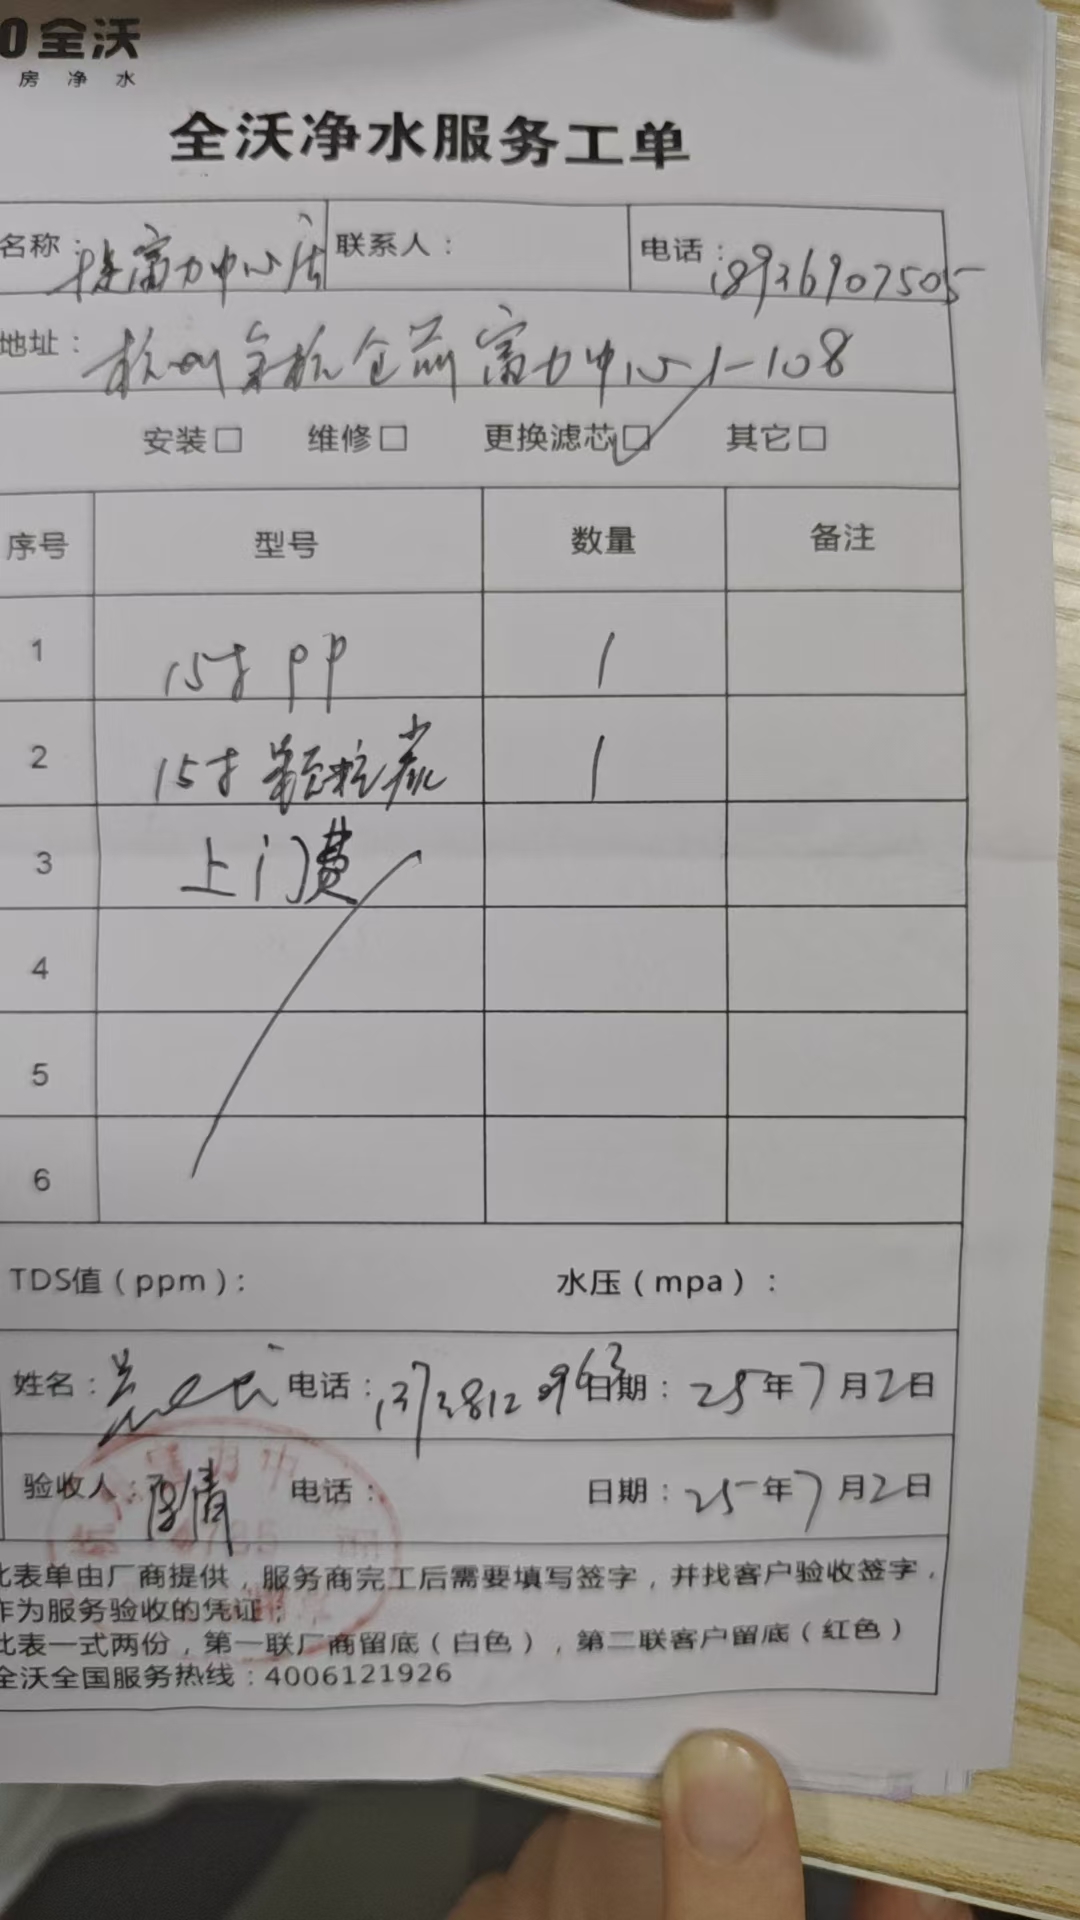 0全沃
房净水
全沃净水服务工单
名称： 富力中心店 联系人： 电话：18936907505
地址：杭州余杭仓前富力中心1-108
安装□ 维修□ 更换滤芯□ 其它□
序号 型号 数量 备注
1 15寸PP 1
2 15寸颗粒炭 1
3 上门费
4
5
6
TDS值（ppm）： 水压（mpa）：
姓名： 电话： 日期：25年7月2日
验收人： 倩 电话： 日期：25年7月2日
此表单由厂商提供，服务商完工后需要填写签字，并找客户验收签字，
作为服务验收的凭证；
此表一式两份，第一联厂商留底（白色），第二联客户留底（红色）
全沃全国服务热线：4006121926